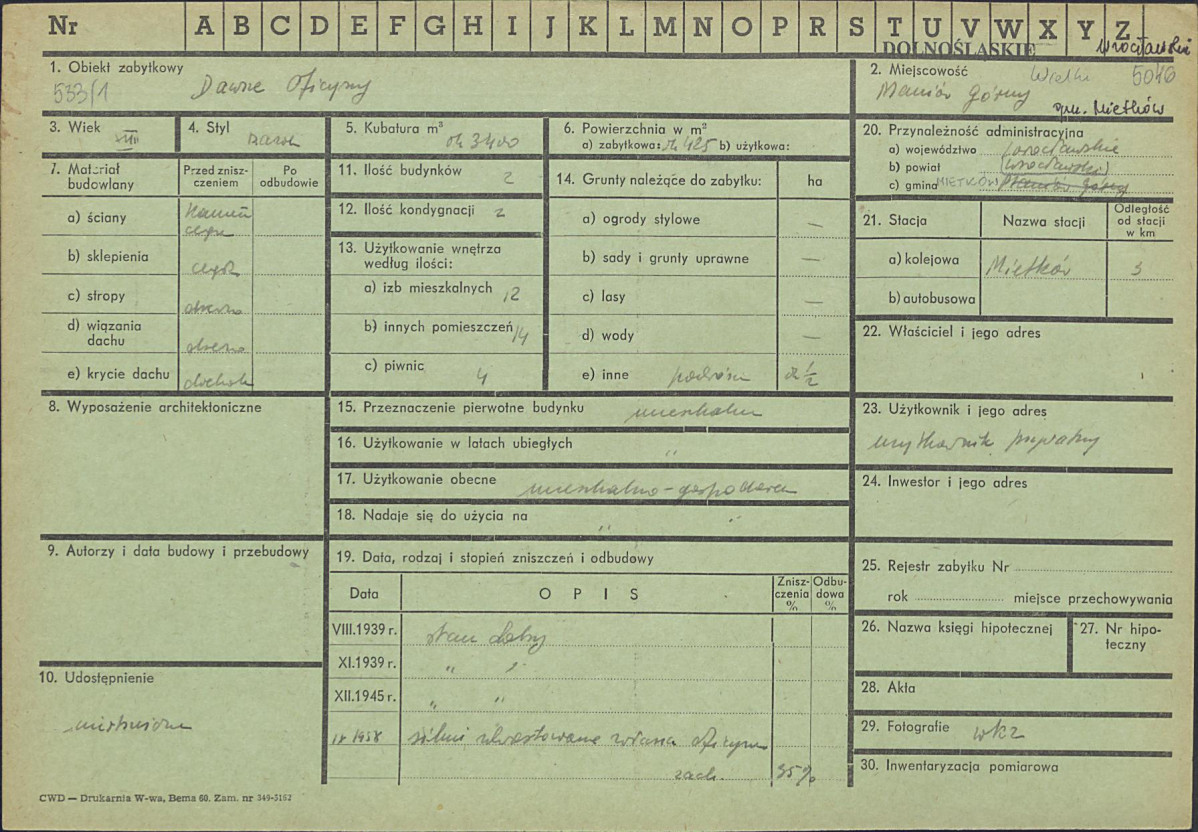 Nr A B C D E F G H I J K L M N O P R S T U V W X Y Z
DOLNOŚLĄSKIE wrocławski
1. Obiekt zabytkowy
533/1 Dawne Oficyny
2. Miejscowość Wielki 5046
Maniów Górny
gm. Mietków
3. Wiek XVIII
4. Styl barok
5. Kubatura m³ ok 3400
6. Powierzchnia w m²
a) zabytkowa: ok 425 b) użytkowa:
7. Materiał budowlany
Przed zniszczeniem
Po odbudowie
a) ściany kamień
cegła
b) sklepienia cegła
c) stropy drewno
d) wiązania dachu drewno
e) krycie dachu dachówk
8. Wyposażenie architektoniczne
9. Autorzy i data budowy i przebudowy
10. Udostępnienie
11. Ilość budynków 2
12. Ilość kondygnacji 2
13. Użytkowanie wnętrza
według ilości:
a) izb mieszkalnych 12
b) innych pomieszczeń 14
c) piwnic 4
14. Grunty należące do zabytku: ha
a) ogrody stylowe —
b) sady i grunty uprawne —
c) lasy —
d) wody —
e) inne podwórze ok ½
15. Przeznaczenie pierwotne budynku mieszkalne
16. Użytkowanie w latach ubiegłych "
17. Użytkowanie obecne mieszkalno-gospodarcze
18. Nadaje się do użycia na " "
19. Data, rodzaj i stopień zniszczeń i odbudowy
Data OPIS Zniszczenia % Odbudowa %
VIII.1939 r. stan dobry
XI.1939 r. " "
XII.1945 r. " "
IV 1958 silnie zdewastowane zwłaszcza oficyna
zach. 35%
20. Przynależność administracyjna
a) województwo (wrocławskie
b) powiat (wrocławski)
c) gmina MIETKÓW Maniów Górny
21. Stacja Nazwa stacji Odległość od stacji w km
a) kolejowa Mietków 3
b) autobusowa
22. Właściciel i jego adres
23. Użytkownik i jego adres
użytkownik prywatny
24. Inwestor i jego adres
25. Rejestr zabytku Nr
rok miejsce przechowywania
26. Nazwa księgi hipotecznej
27. Nr hipoteczny
28. Akta
29. Fotografie WKZ
30. Inwentaryzacja pomiarowa
CWD — Drukarnia W-wa, Bema 60. Zam. nr 349-5162